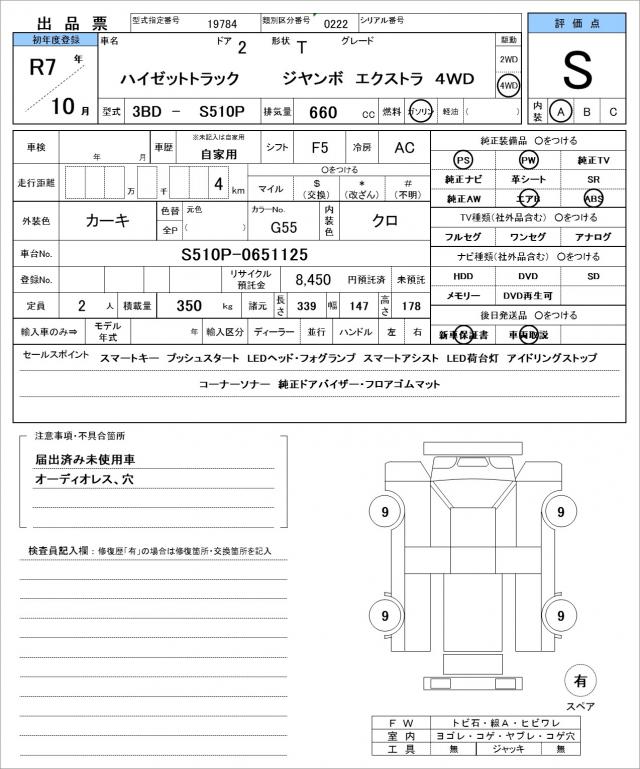 出品票 型式指定番号 19784 類別区分番号 0222 シリアル番号
評価点
初年度登録 車名 ドア 2 形状 T グレード 駆動
R7 年 10 月
ハイゼットトラック ジヤンボ エクストラ 4WD
2WD
4WD
S
型式 3BD － S510P 排気量 660 cc 燃料 ガソリン 軽油 ( )
内装 A B C
車検 年 月 車歴 ※未記入は自家用 自家用 シフト F5 冷房 AC
走行距離 万 千 4 km
○をつける
マイル $(交換) *(改ざん) #(不明)
外装色 カーキ 色替 全P 元色 ( ) カラーNo. G55 内装色 クロ
車台No. S510P-0651125
登録No. リサイクル預託金 8,450 円預託済 未預託
定員 2 人 積載量 350 kg 諸元 長さ 339 幅 147 高さ 178
輸入車のみ⇒ モデル年式 年 輸入区分 ディーラー 並行 ハンドル 左 右
純正装備品 ○をつける
PS PW 純正TV
純正ナビ 革シート SR
純正AW エアB ABS
TV種類(社外品含む) ○をつける
フルセグ ワンセグ アナログ
ナビ種類(社外品含む) ○をつける
HDD DVD SD
メモリー DVD再生可
後日発送品 ○をつける
新車保証書 車両取説
セールスポイント スマートキー プッシュスタート LEDヘッド・フォグランプ スマートアシスト LED荷台灯 アイドリングストップ
コーナーソナー 純正ドアバイザー・フロアゴムマット
注意事項・不具合箇所
届出済み未使用車
オーディオレス、穴
検査員記入欄：修復歴「有」の場合は修復箇所・交換箇所を記入
9 9
9 9
有
スペア
F W トビ石・線A・ヒビワレ
室内 ヨゴレ・コゲ・ヤブレ・コゲ穴
工具 無 ジャッキ 無